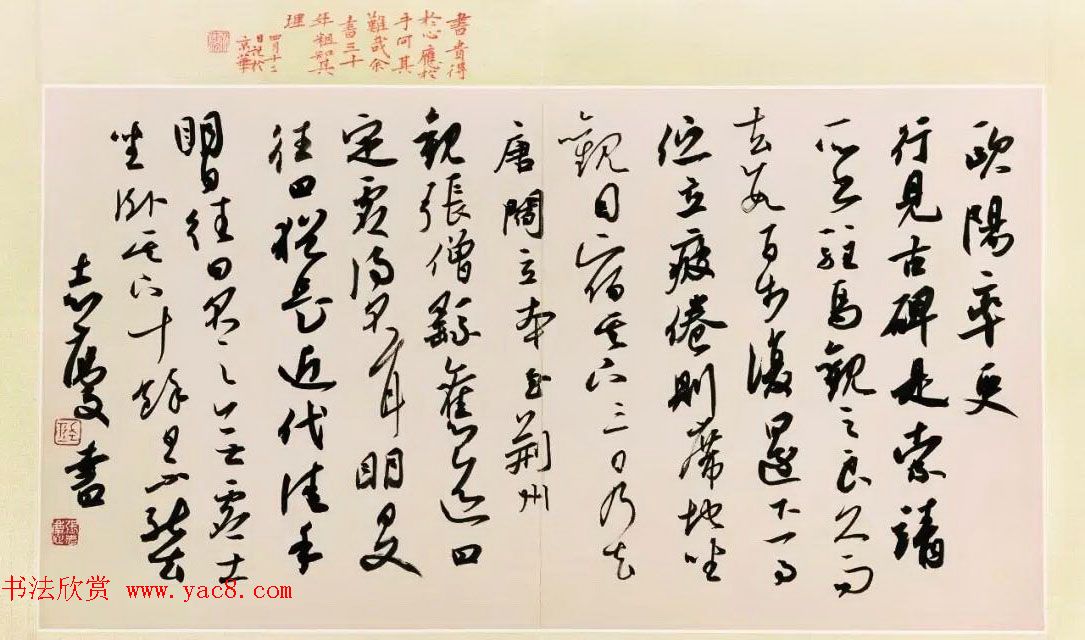 書貴得
於心應於
手何其
難哉余
書三十
年粗知其
理
四月十二
日記於
京華
歐陽率更
行見古碑是索靖
所書駐馬觀之良久而
去數百步復還下馬
佇立疲倦則席地坐
觀因宿其下三日乃去
唐閻立本至荊州
觀張僧繇舊迹曰
定虛得名耳明日又
往曰猶是近代佳手
明日往曰名下定無虛士
坐臥其下十餘日不能去
志慶書
书法欣赏 www.yac8.com